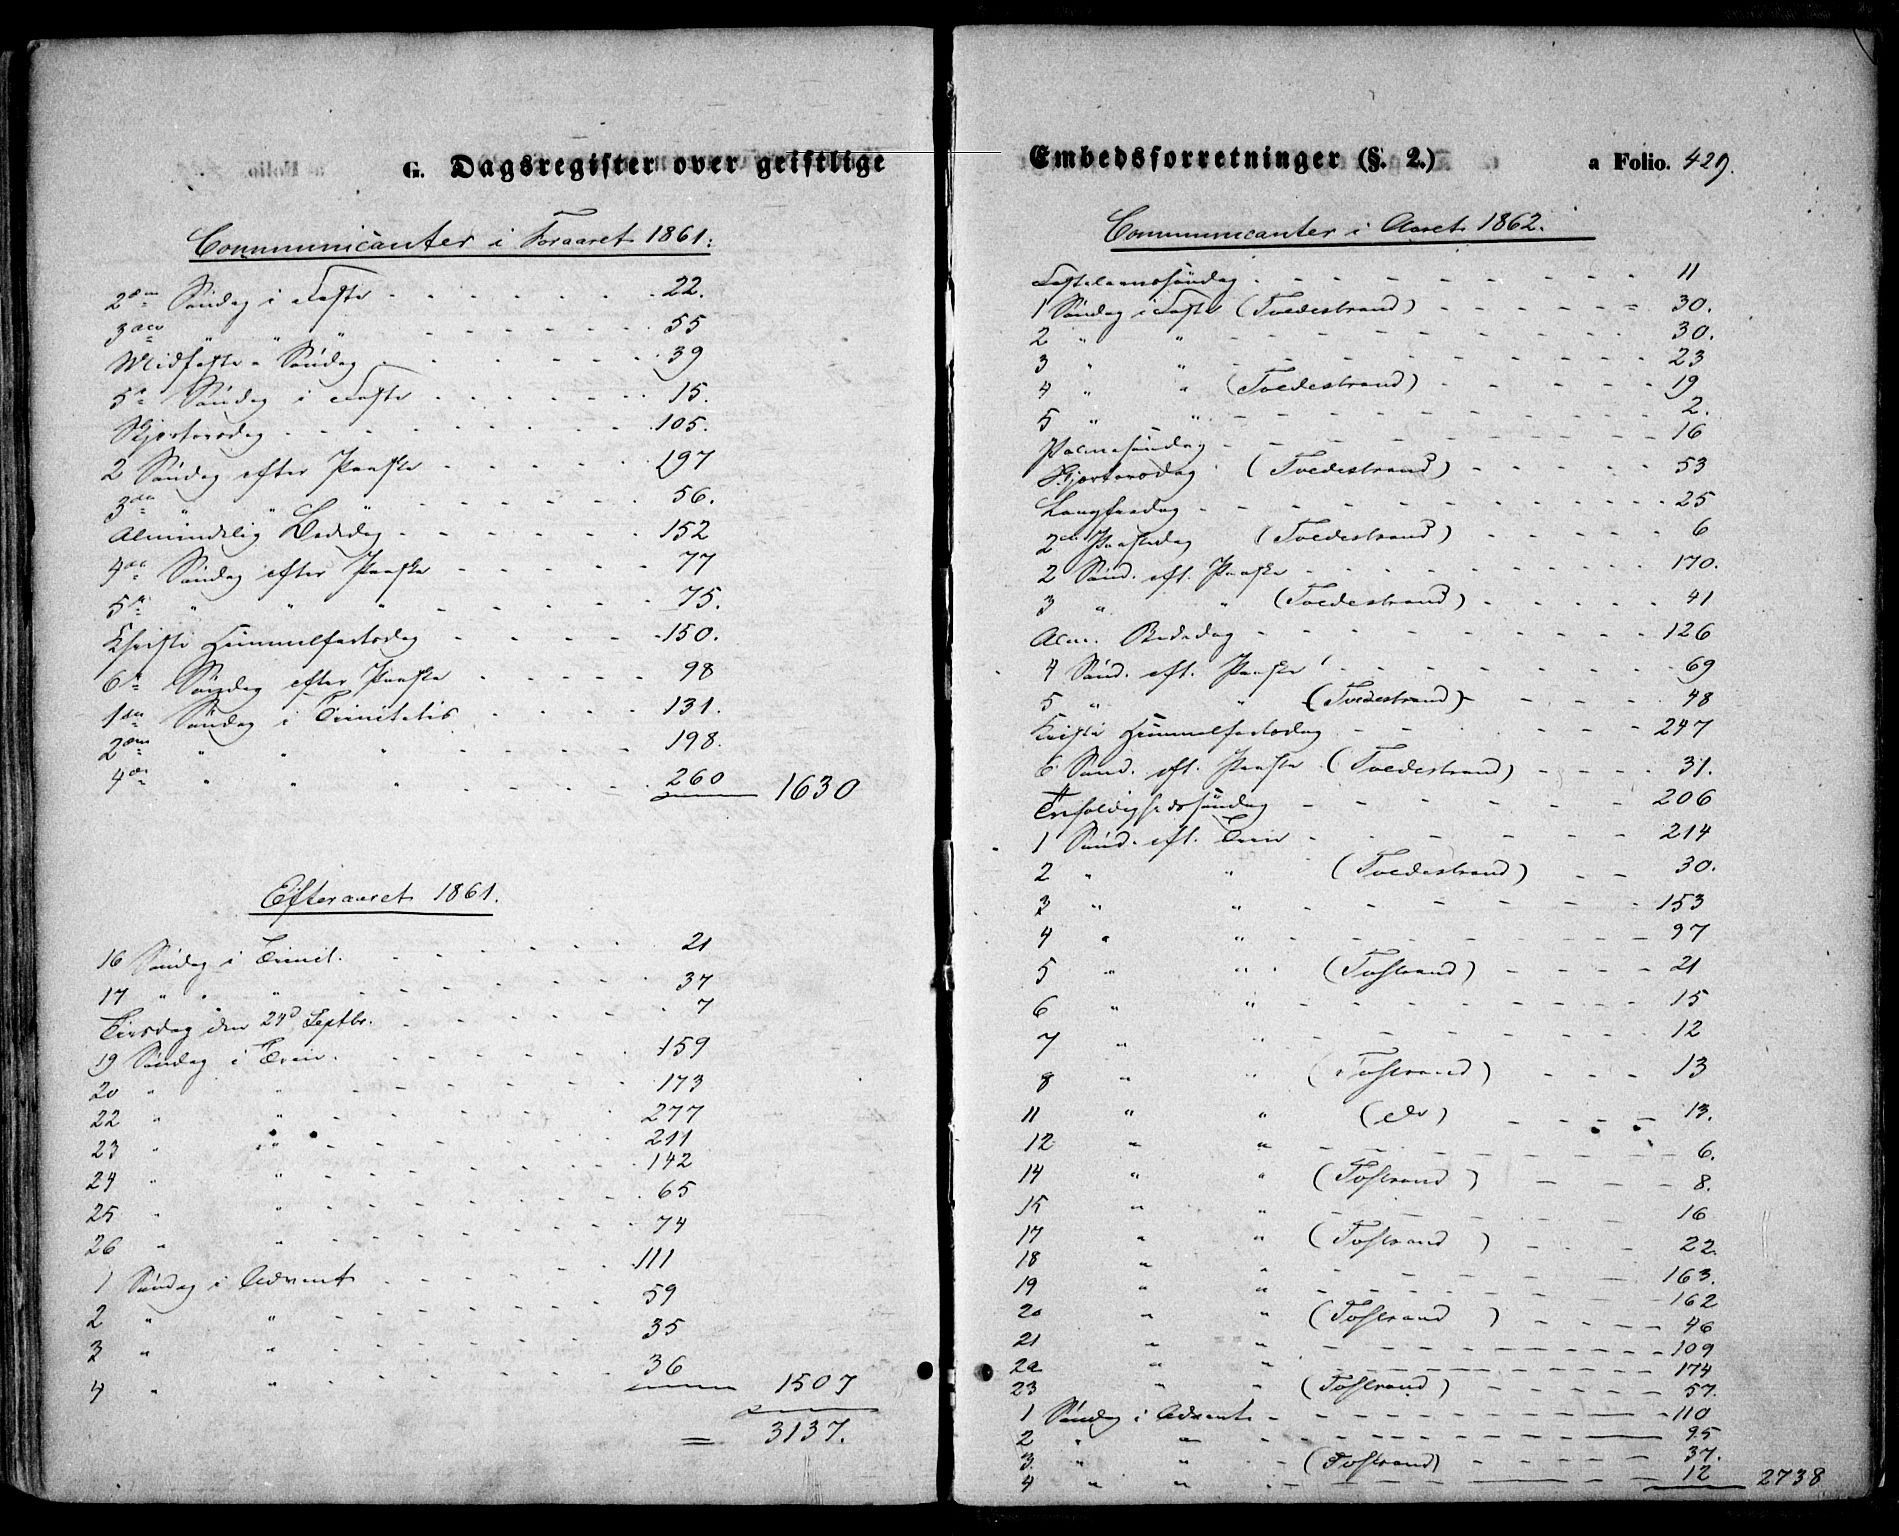 G. Dagsregister over geistlige
Communicanter i Foraaret 1861.
2den Søndag i Faste 22.
3die " " " 55
Midfaste-Søndag 39
5te Søndag i Faste 15.
Skjertorsdag 105.
2 Søndag efter Paaske 197
3die " " 56.
Almindelig Bededag 152
4de Søndag efter Paaske 77
5te " " " 75.
Christi Himmelfartsdag 150.
6te Søndag efter Paaske 98
1ste Søndag i Trinitatis 131.
2den " " " 198.
4de " " " 260 1630
Efteraaret 1861.
16 Søndag i Trinit. 21
17 " " " 37
Tirsdag den 24d Septbr. 7
19 Søndag i Trin. 159
20 " " 173
22 " " 277
23 " " 211
24 " " 142
25 " " 65
26 " " 74
1 Søndag i Advent 111
2 " " 59
3 " " 35
4 " " 36 1507
= 3137.
Embedsforretninger (§. 2.) a Folio. 429.
Communicanter i Aaret 1862.
Fastelavnssøndag 11
1 Søndag i Faste (Tvedestrand) 30.
2 " " 30.
3 " " 23
4 " " (Tvedestrand) 19
5 " " 2.
Palmesøndag 16
Skjertorsdag (Tvedestrand) 53
Langfredag 25
2en Paaskedag (Tvedestrand) 6
2 Sønd. eft. Paaske 170.
3 " " (Tvedestrand) 41
Alm. Bededag 126
4 Sønd. eft. Paaske 69
5 " " (Tvedestrand) 48
Kristi Himmelfartsdag 247
6 Sønd. eft. Paaske (Tvedestrand) 31.
Trefoldighedssøndag 206
1 Sønd. eft. Trin 214
2 " " (Tvedestrand) 30.
3 " " 153
4 " " 97
5 " " (Tvstrand) 21
6 " " 15
7 " " 12
8 " " (Tvstrand) 13
11 " " (do) 13.
12 " " 6.
14 " " (Tvstrand) 8.
15 " " 16
17 " " (Tvstrand) 22.
18 " " 163.
19 " " 162
20 " " (Tvstrand) 46
21 " " 109
22 " " 174
23 " " (Tvstrand) 57.
1 Søndag i Advent 110
2 " " 95
3. " " (Tvstrand) 37.
4 " " 12 2738